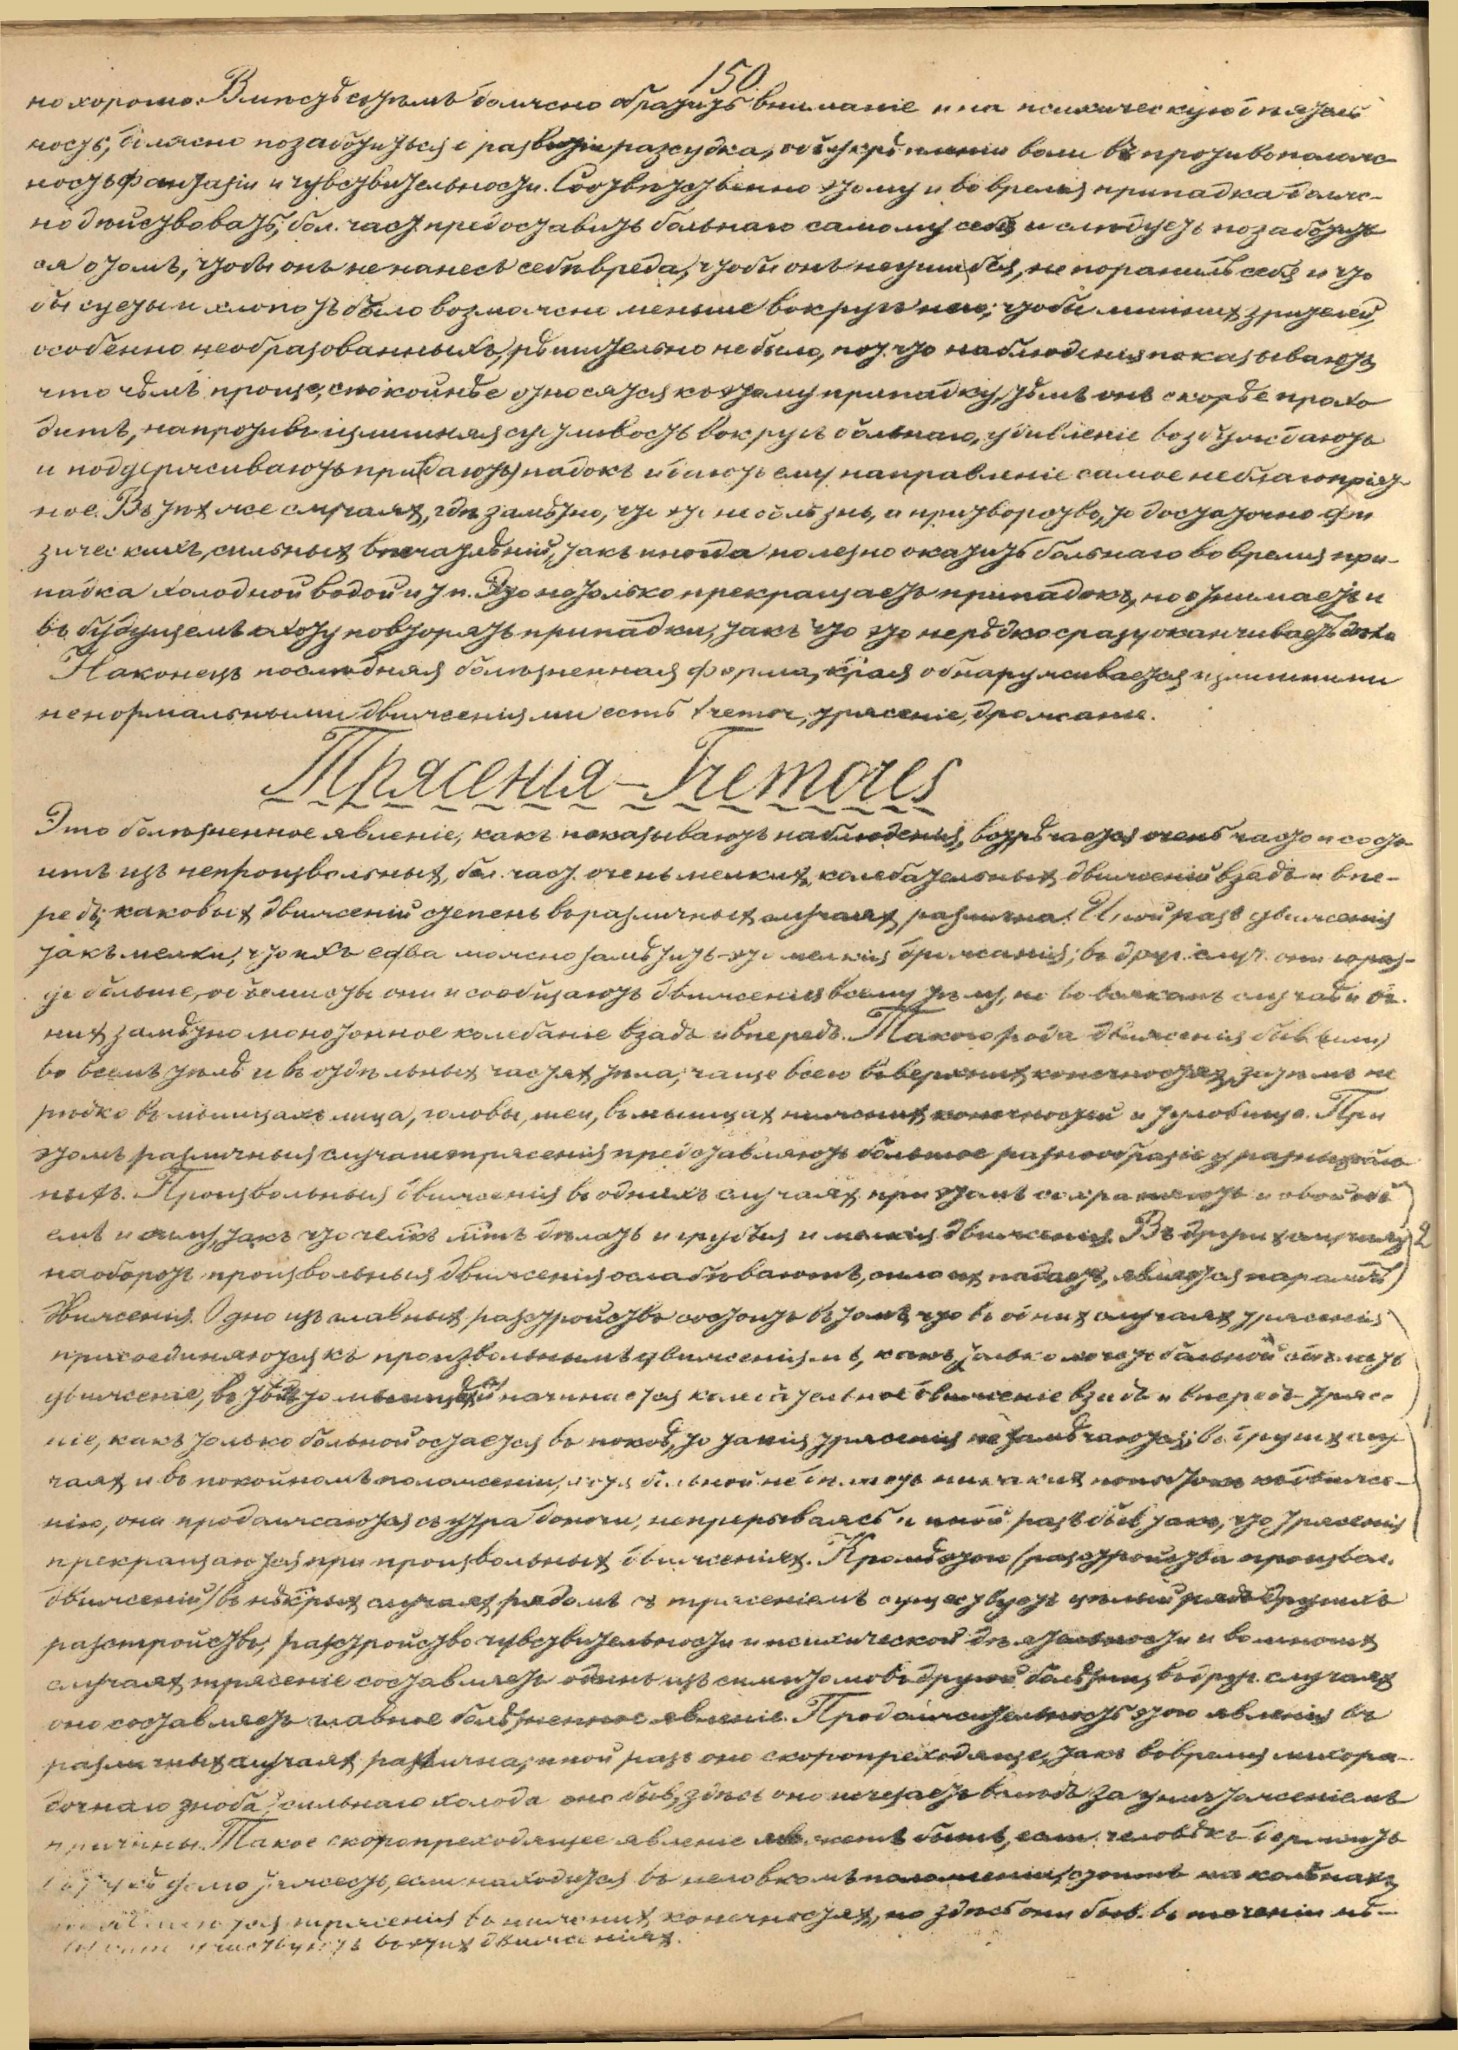 150.
но хорошо. Вмѣстѣ съ тѣмъ должно обратить вниманіе и на психическую дѣятель
ность, должно позаботиться о развитіи разсудка, объ укрѣпленіи воли въ противополож
ность фантазіи и чувствительности. Соотвѣтственно этому и во время припадка долж-
но дѣйствовать, бол. част. предоставить больнаго самому себѣ и слѣдуетъ позаботить
ся о томъ, чтобы онъ не нанесъ себѣ вреда, чтобы онъ не ушибся, не поранилъ себя и что
бы суеты и хлопотъ было возможно меньше вокругъ него; чтобы лишних зрителей,
особенно необразованныхъ, рѣшительно не было, пот. что наблюденія показываютъ
что чѣмъ проще, спокойнѣе относятся къ этому припадку, тѣмъ онъ скорѣе прохо
дитъ, напротивъ излишняя суетливость вокругъ больнаго, удивленіе возбуждаютъ
и поддерживаютъ припадокъ и даютъ ему направленіе самое неблагопріят-
ное. Въ тѣх же случаях, гдѣ замѣтно, что это не болѣзнь, а притворство, то достаточно фи
зическихъ, сильных впечатлѣній, такъ иногда полезно окатить больнаго во время при-
падка холодной водой и т. п. Это не только прекращаетъ припадокъ, но отнимаетъ и
въ будущемъ охоту повторять припадки, такъ что это нерѣдко сразу оканчиваетъ дѣло
Наконецъ послѣдняя болѣзненная форма, к͠рая обнаруживается излишними
ненормальными движеніями есть tremor, трясеніе, дрожаніе.
Трясенія – Tremores
Это болѣзненное явленіе, какъ показываютъ наблюденія, встрѣчается очень часто и состо
итъ изъ непроизвольных, бол. част. очень мелких, колебательных движеній взадъ и впе-
редъ; каковых движеній степень въ различных случаях различна. Иной разъ движенія
такъ мелки, что ихъ едва можно замѣтить – это мелкія дрожанія; въ друг. случ. они гораз-
до больше, объемисты они и сообщаютъ движенія всему тѣлу, но во всякомъ случаѣ и въ
них замѣтно монотонное колебаніе взадъ и впередъ. Такого рода движенія быв. (или)
во всемъ тѣлѣ и въ отдѣльных частях тѣла, чаще всего въ верхних конечностях, затѣмъ не
рѣдко въ мышцахъ лица, головы, шеи, въ мышцах нижних конечностей и туловища. При
этомъ различныя случаи трясенія предоставляютъ большое разнообразіе у разных боль
ныхъ. Произвольныя движенія въ однихъ случаях при этомъ сохраняютъ и свой объ
емъ и силу, такъ что челкъ мтъ дѣлать и грубыя и мелкія движенія. Въ других случаях 2
наоборотъ произвольныя движенія ослабѣваютъ, сила их падаетъ, является параличъ
движенія. Одно изъ главных разстройствъ состоитъ въ томъ, что въ одних случаях трясенія
присоединяются къ произвольнымъ движеніямъ, какъ только хочетъ больной сдѣлать
движеніе, въ той же мышцѣ и начинается колебательное движеніе взадъ и впередъ – трясе-
ніе, какъ только больной остается въ покоѣ, то такія трясенія не замѣчаются; въ других слу
чаях и въ покойномъ положеніи, хотя больной не дѣлаетъ никаких попытокъ къ движе-
нію, они продолжаются съ утра до ночи, непрерываясь и иной разъ быв. такъ, что трясенія
прекращаются при произвольных движеніях. Кромѣ этого (разстройства произвол.
движеній) въ нѣк͠рых случаях рядомъ съ трясеніемъ существуетъ цѣлый рядъ другихъ
разстройствъ, разстройство чувствительности и психической дѣятельности и во многих
случаях трясеніе составляетъ одинъ изъ симптомовъ другой болѣзни, въ друг. случаях
оно составляетъ главное болѣзненное явленіе. Продолжительность этого явленія въ
различных случаях различна; иной разъ оно скоропреходяще, такъ во время лихора-
дочнаго зноба, сильнаго холода оно быв., здѣсь оно исчезаетъ вслѣдъ за уничтоженіемъ
причины. Такое скоропреходящее явленіе можетъ быть, если человѣкъ держитъ
тяжесть, если находится въ неловкомъ положеніи, стоитъ на колѣнахъ,
трясенія въ нижних конечностях, но здѣсь они быв. въ теченіи нѣ-
въ этих движеніях.